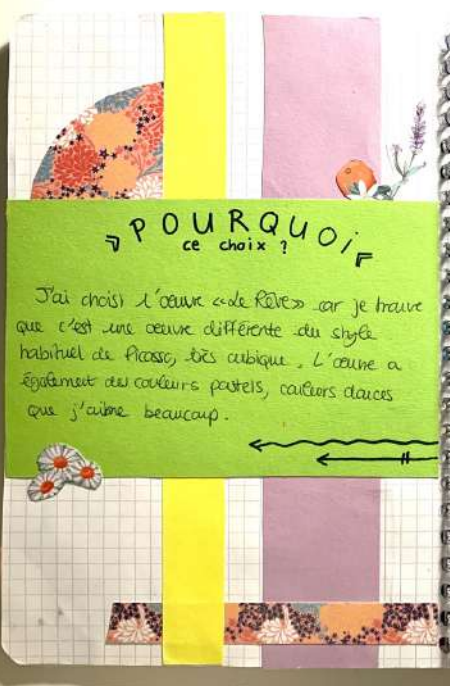 POURQUOi
ce choix ?
J'ai choisi l'œuvre «Le Rêve» car je trouve
que c'est une œuvre différente du style
habituel de Picasso, très cubique. L'œuvre a
également des couleurs pastels, couleurs douces
que j'aime beaucoup.